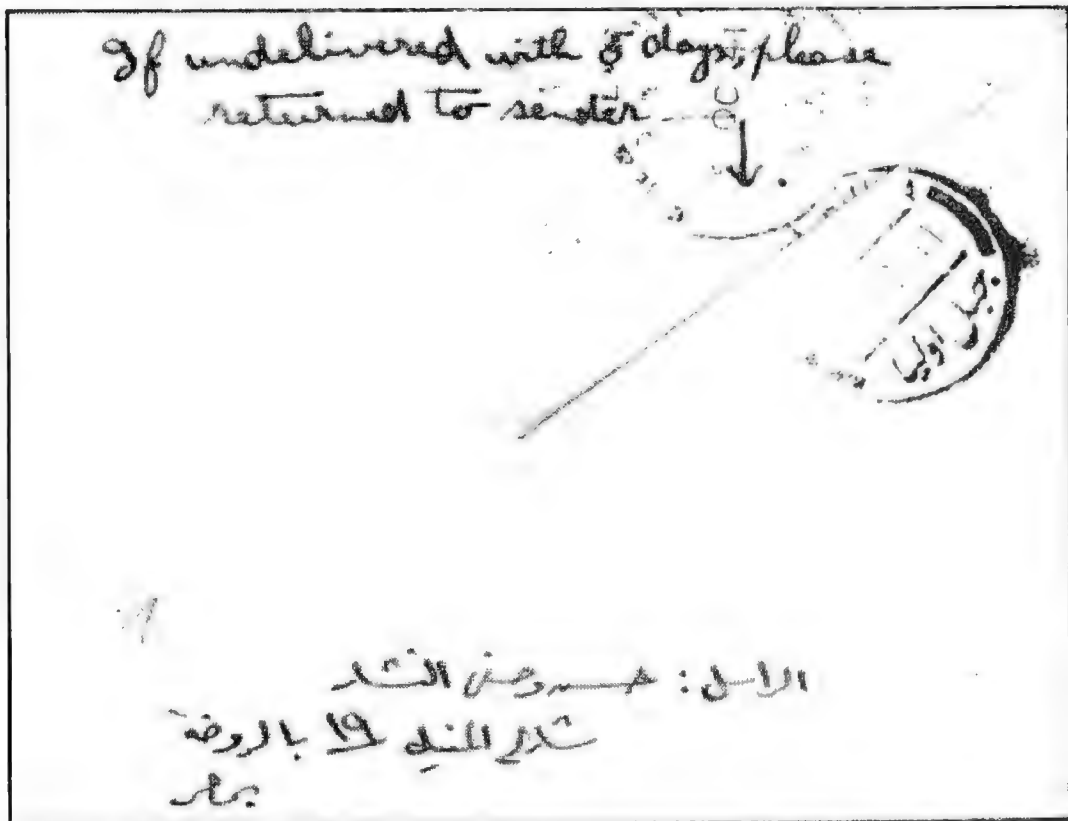 If undelivered with 5 days, please
returned to sender
جبل اوليا
الراسل: حسن وصفى
شارع المنيل ١٩ بالروضة
بمصر